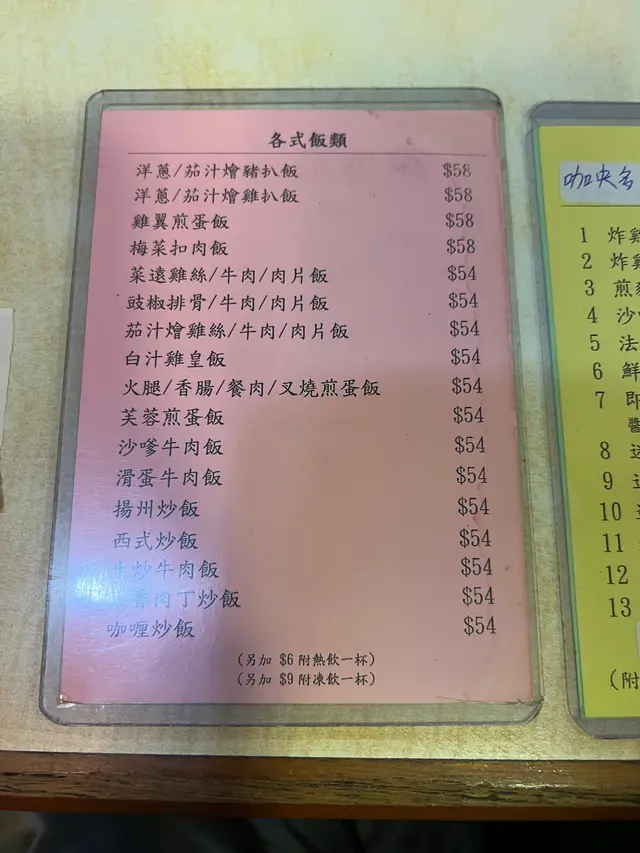 各式飯類
洋蔥/茄汁燴豬扒飯 $58
洋蔥/茄汁燴雞扒飯 $58
雞翼煎蛋飯 $58
梅菜扣肉飯 $58
菜遠雞絲/牛肉/肉片飯 $54
豉椒排骨/牛肉/肉片飯 $54
茄汁燴雞絲/牛肉/肉片飯 $54
白汁雞皇飯 $54
火腿/香腸/餐肉/叉燒煎蛋飯 $54
芙蓉煎蛋飯 $54
沙嗲牛肉飯 $54
滑蛋牛肉飯 $54
揚州炒飯 $54
西式炒飯 $54
生炒牛肉飯 $54
香肉丁炒飯 $54
咖喱炒飯 $54
(另加 $6 附熱飲一杯)
(另加 $9 附凍飲一杯)
咖央多
1 炸雞
2 炸雞
3 煎
4 沙
5 法
6 鮮
7 即
8
9
10
11
12
13
(附